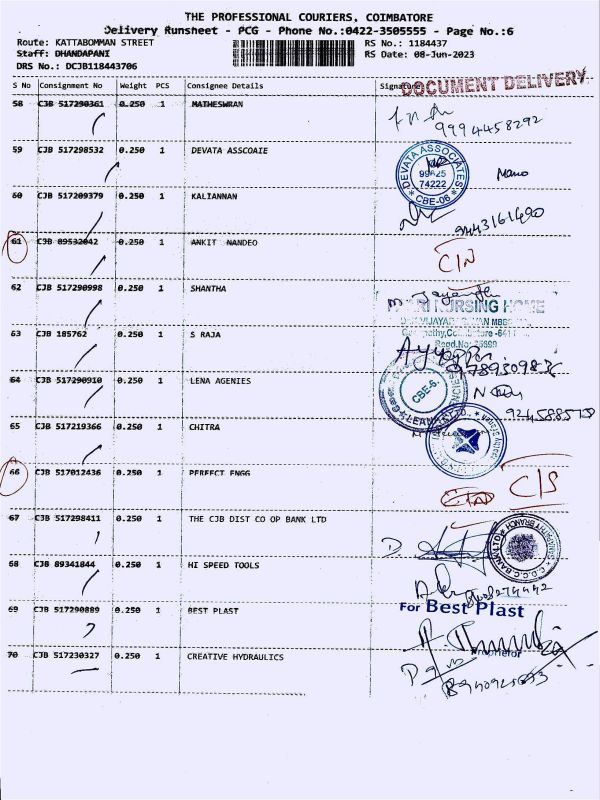 THE PROFESSIONAL COURIERS, COIMBATORE
Delivery Runsheet - PCG - Phone No.:0422-3505555 - Page No.:6
Route: KATTABOMMAN STREET RS No.: 1184437
Staff: DHANDAPANI RS Date: 08-Jun-2023
DRS No.: DCJB118443706
DOCUMENT DELIVERY
S No Consignment No Weight PCS Consignee Details Signature
58 CJB 517290361 0.250 1 MATHESWRAN
9994458292
59 CJB 517298532 0.250 1 DEVATA ASSCOAIE
DEVATA ASSOCIATES
74222
CBE-06
Mano
60 CJB 517209379 0.250 1 KALIANNAN
9443161490
61 CJB 89532042 0.250 1 ANKIT NANDEO
C/N
62 CJB 517290998 0.250 1 SHANTHA
NURSING HOME
63 CJB 185762 0.250 1 S RAJA
64 CJB 517290910 0.250 1 LENA AGENIES
CBE-6.
65 CJB 517219366 0.250 1 CHITRA
66 CJB 517012436 0.250 1 PERFECT ENGG
C/S
67 CJB 517298411 0.250 1 THE CJB DIST CO OP BANK LTD
68 CJB 89341844 0.250 1 HI SPEED TOOLS
69 CJB 517290889 0.250 1 BEST PLAST
For Best Plast
Proprietor
70 CJB 517230327 0.250 1 CREATIVE HYDRAULICS